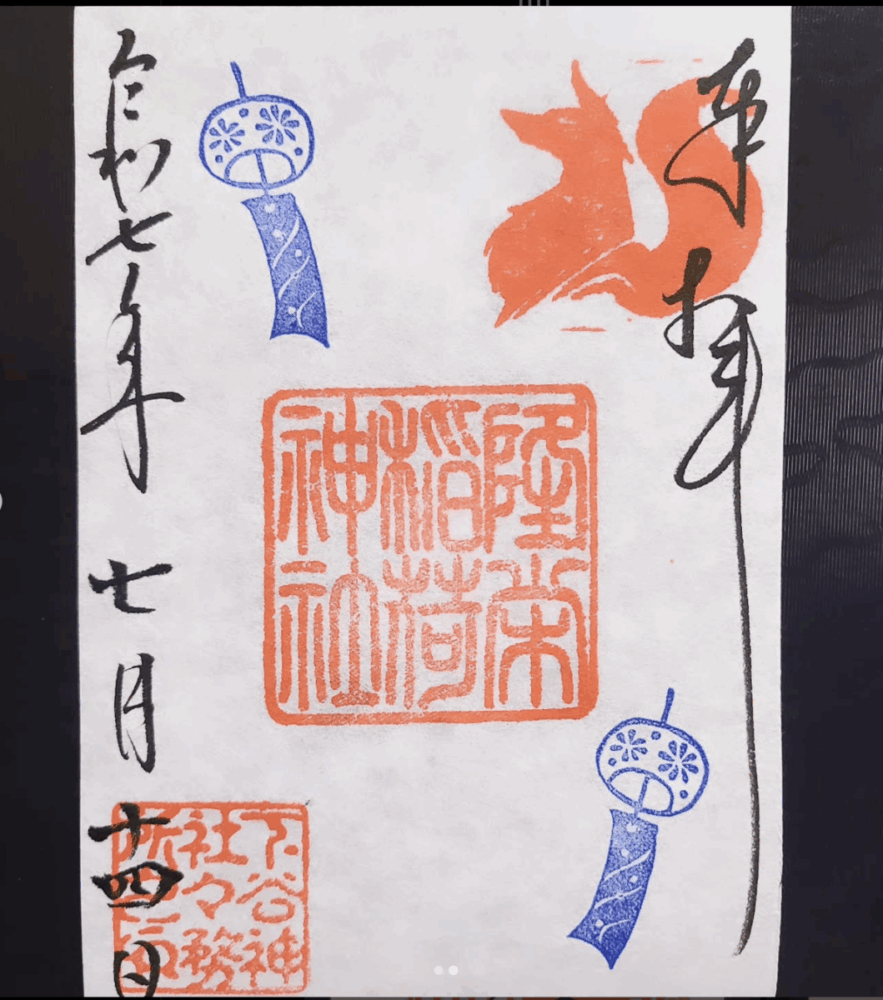 奉拝
隆栄
稲荷
神社
令和七年 七月 十四日
下谷神
社々務
所之印